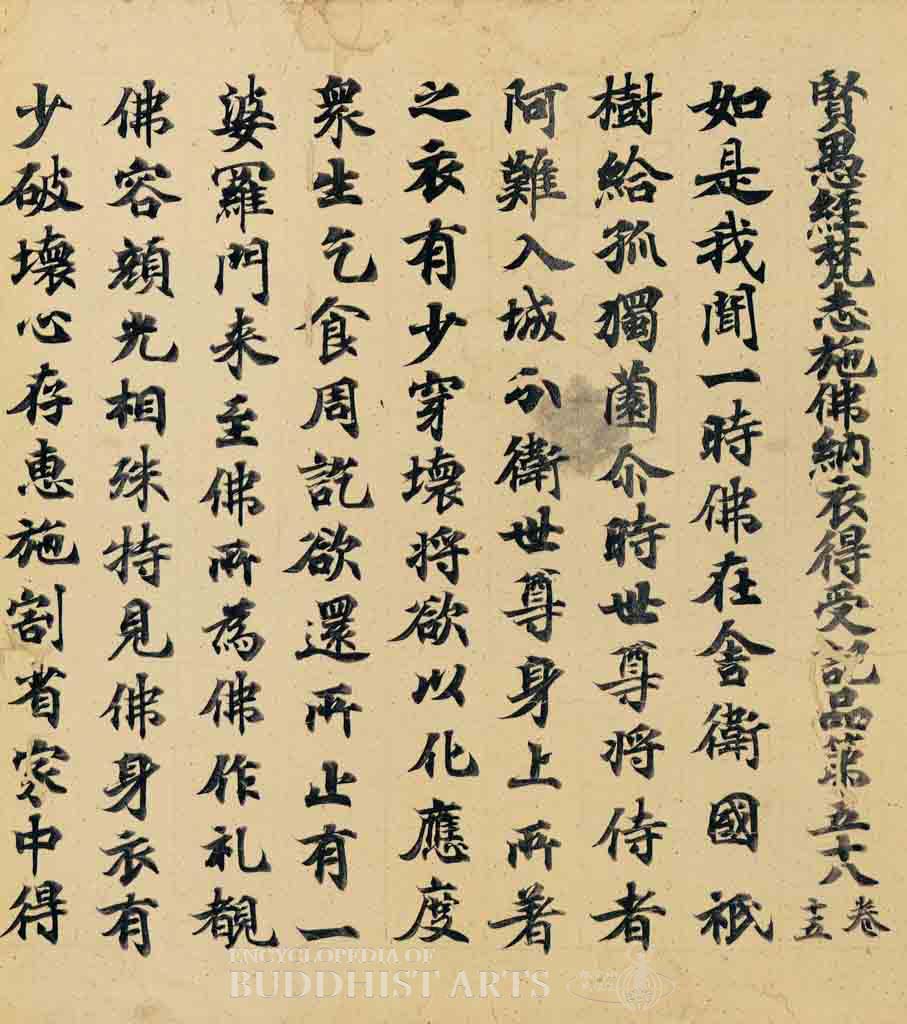 賢愚經梵志施佛納衣得受記品第五十八 卷十五
如是我聞一時佛在舍衛國祇
樹給孤獨薗尒時世尊將侍者
阿難入城分衛世尊身上所著
之衣有少穿壞將欲以化應度
衆生乞食周訖欲還所止有一
婆羅門来至佛所為佛作礼覩
佛容顔光相殊特見佛身衣有
少破壞心存惠施割省家中得
ENCYCLOPEDIA OF
BUDDHIST ARTS